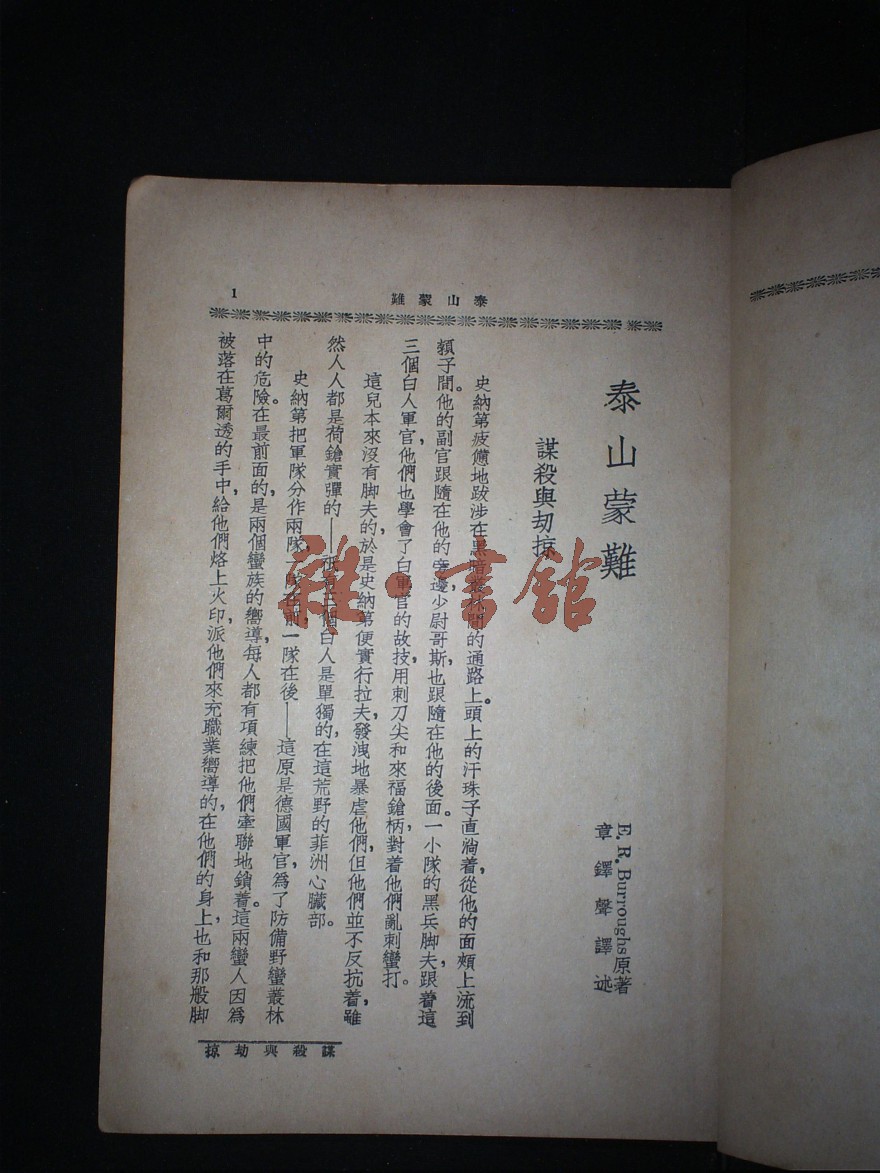 1
泰山蒙難
泰山蒙難
E. R. Burroughs 原著
章鐸聲譯述
謀殺與刧掠
史納第疲憊地跋涉在黑暗叢林間的通路上。頭上的汗珠子直淌着，從他的面頰上流到
頦子間。他的副官跟隨在他的旁邊，少尉哥斯也跟隨在他的後面。一小隊的黑兵脚夫跟着這
三個白人軍官，他們也學會了白軍官的故技，用刺刀尖和來福鎗柄，對着他們亂刺蠻打。
這兒本來沒有脚夫的，於是史納第便實行拉夫，發洩地暴虐他們，但他們並不反抗着，雖
然人人都是荷鎗實彈的——個白人是單獨的，在這荒野的菲洲心臟部。
史納第把軍隊分作兩隊，一隊在前，一隊在後——這原是德國軍官，爲了防備野蠻叢林
中的危險。在最前面的，是兩個蠻族的嚮導，每人都有項練把他們牽聯地鎖着。這兩蠻人因爲
被落在葛爾透的手中，給他們烙上火印，派他們來充職業嚮導的，在他們的身上，也和那般脚
謀殺與刧掠
雜·書舘